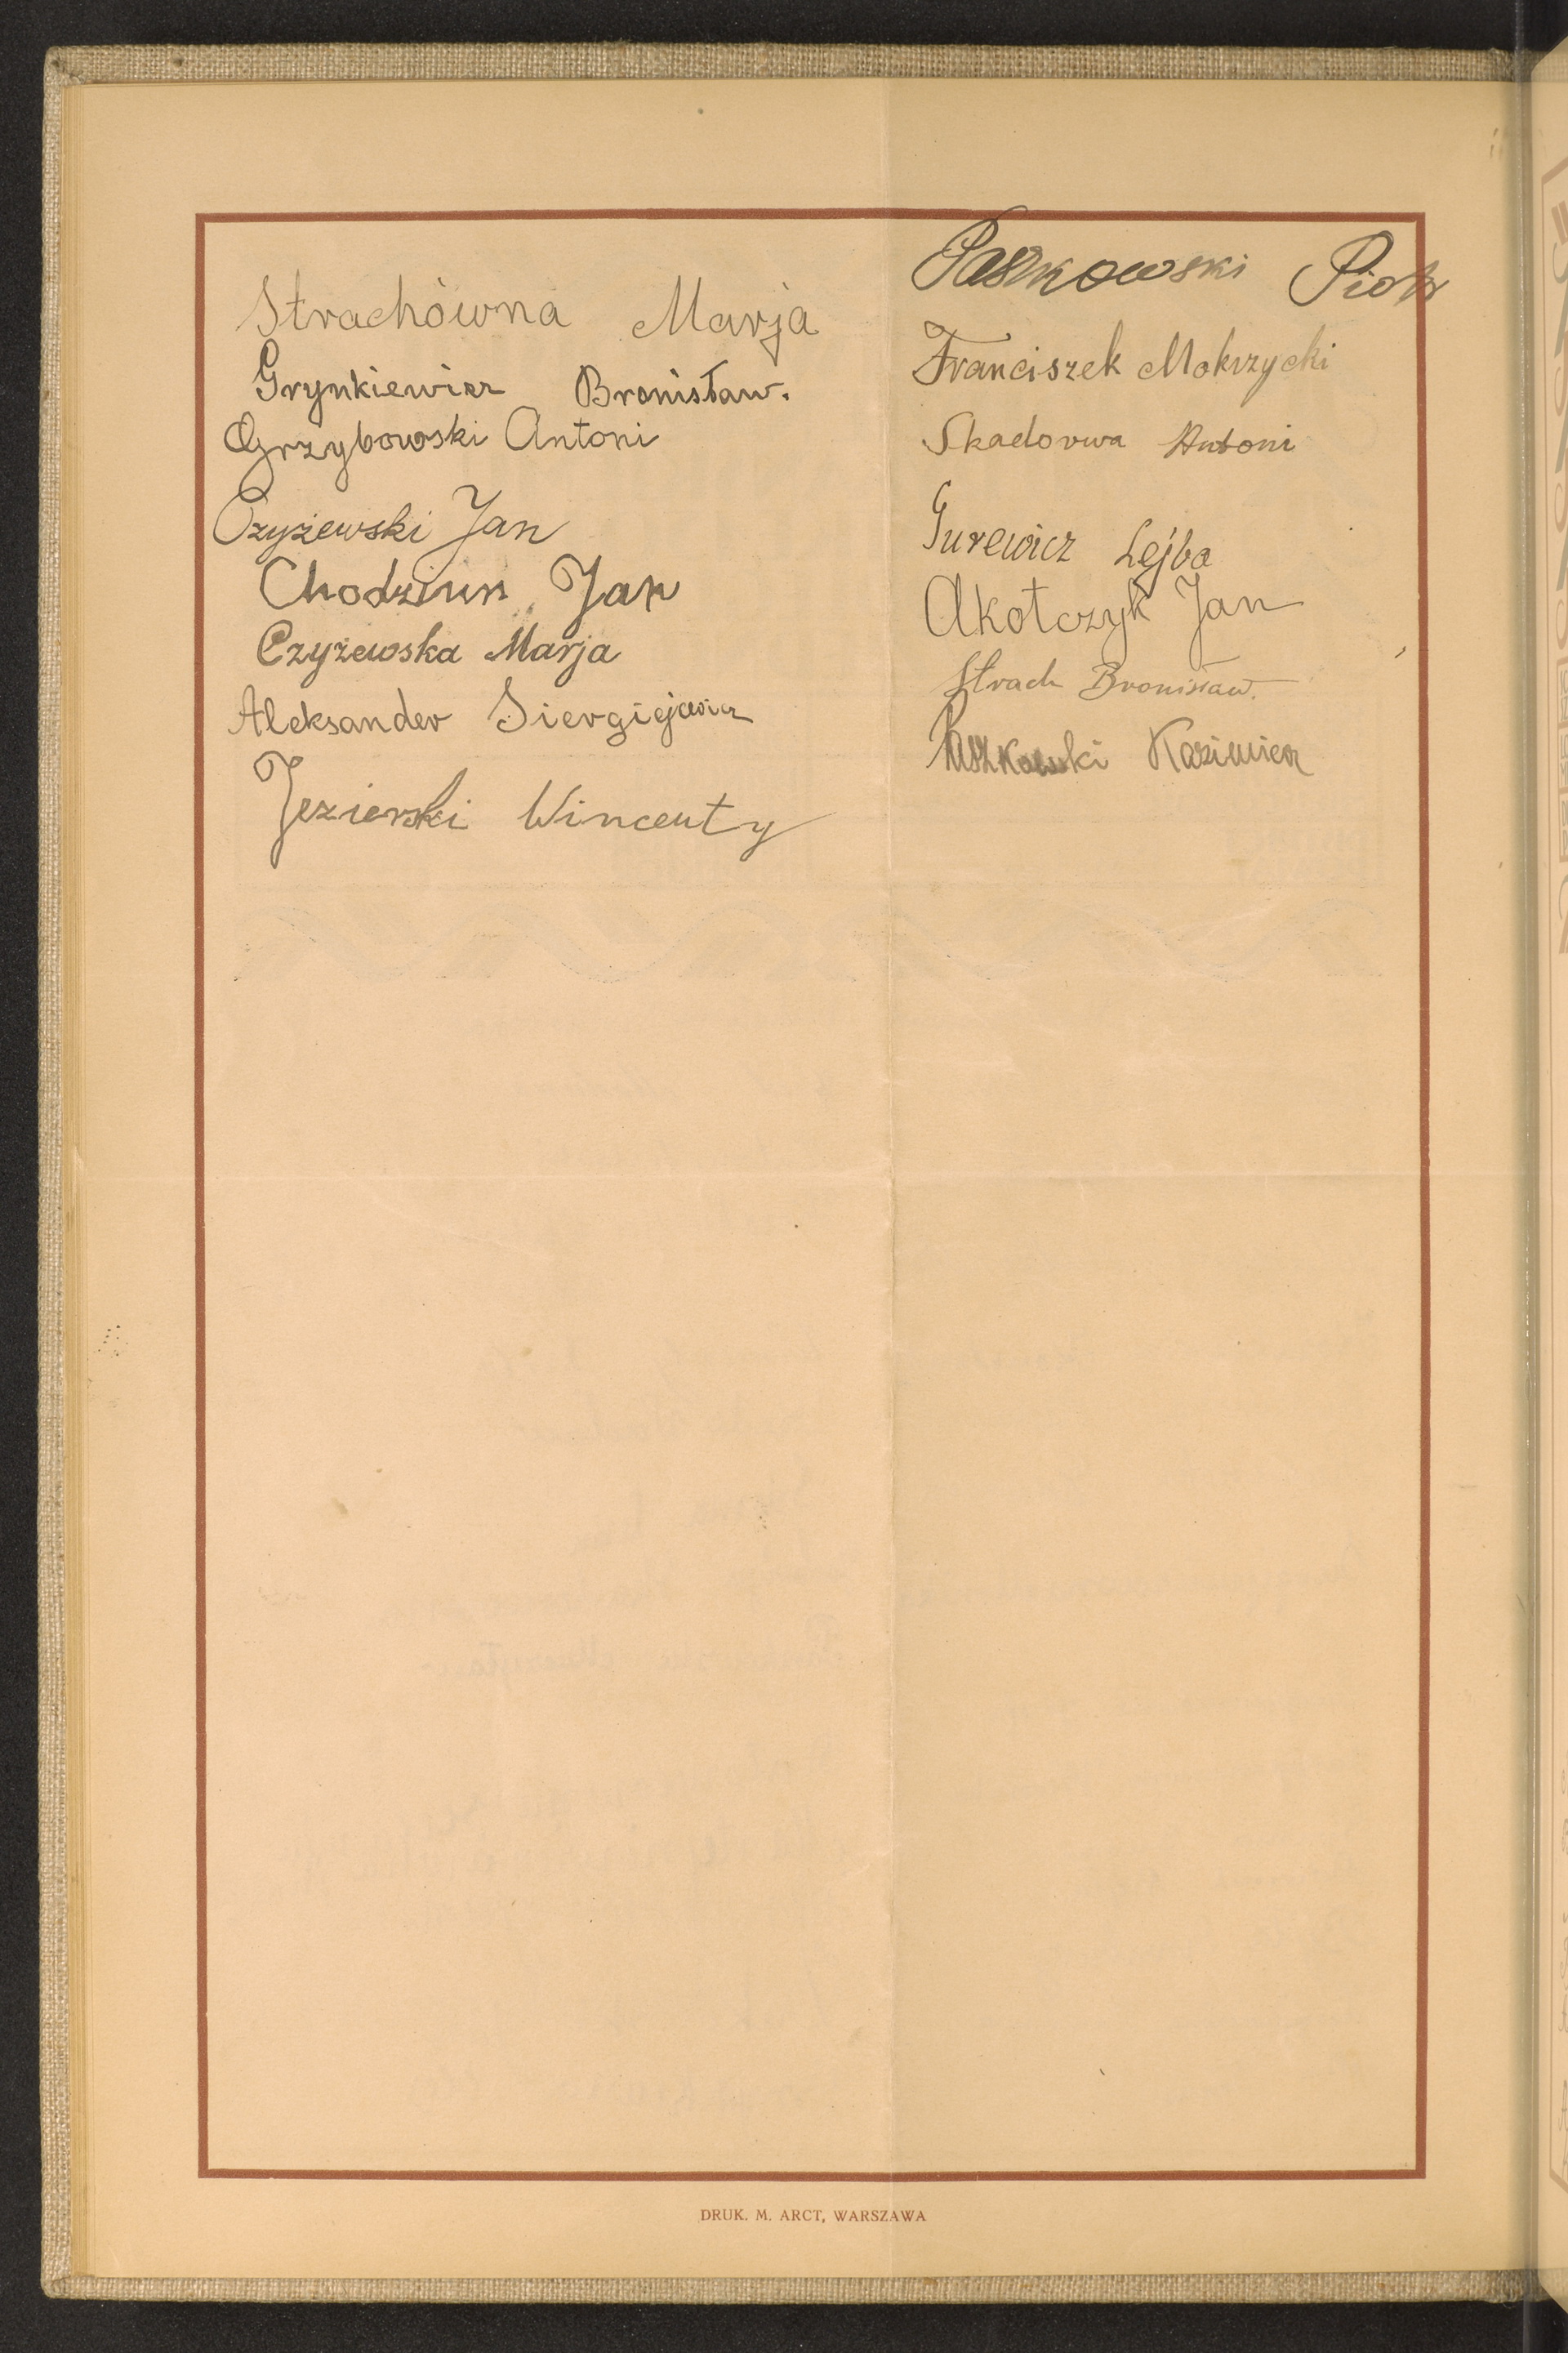 Strachówna Marja
Grynkiewicz Bronisław.
Grzybowski Antoni
Czyżewski Jan
Chodziun Jan
Czyżewska Marja
Aleksander Siergiejewicz
Jezierski Wincenty
Paszkowski Piotr
Franciszek Mokrzycki
Antoni
Gurewicz Lejba
Akotczyk Jan
Strach Bronisław.
Paszkowski Kazimierz
DRUK. M. ARCT, WARSZAWA